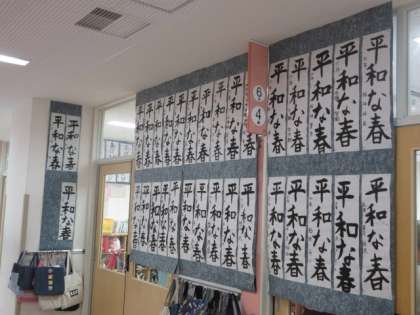 平和な春
平和な春
平和な春
平和な春
平和な春
平和な春
平和な春
平和な春
平和な春
平和な春
平和な春
平和な春
平和な春
平和な春
平和な春
平和な春
平和な春
平和な春
平和な春
6
4
平和な春
平和な春
平和な春
平和な春
平和な春
平和な春
平和な春
平和な春
平和な春
平和な春